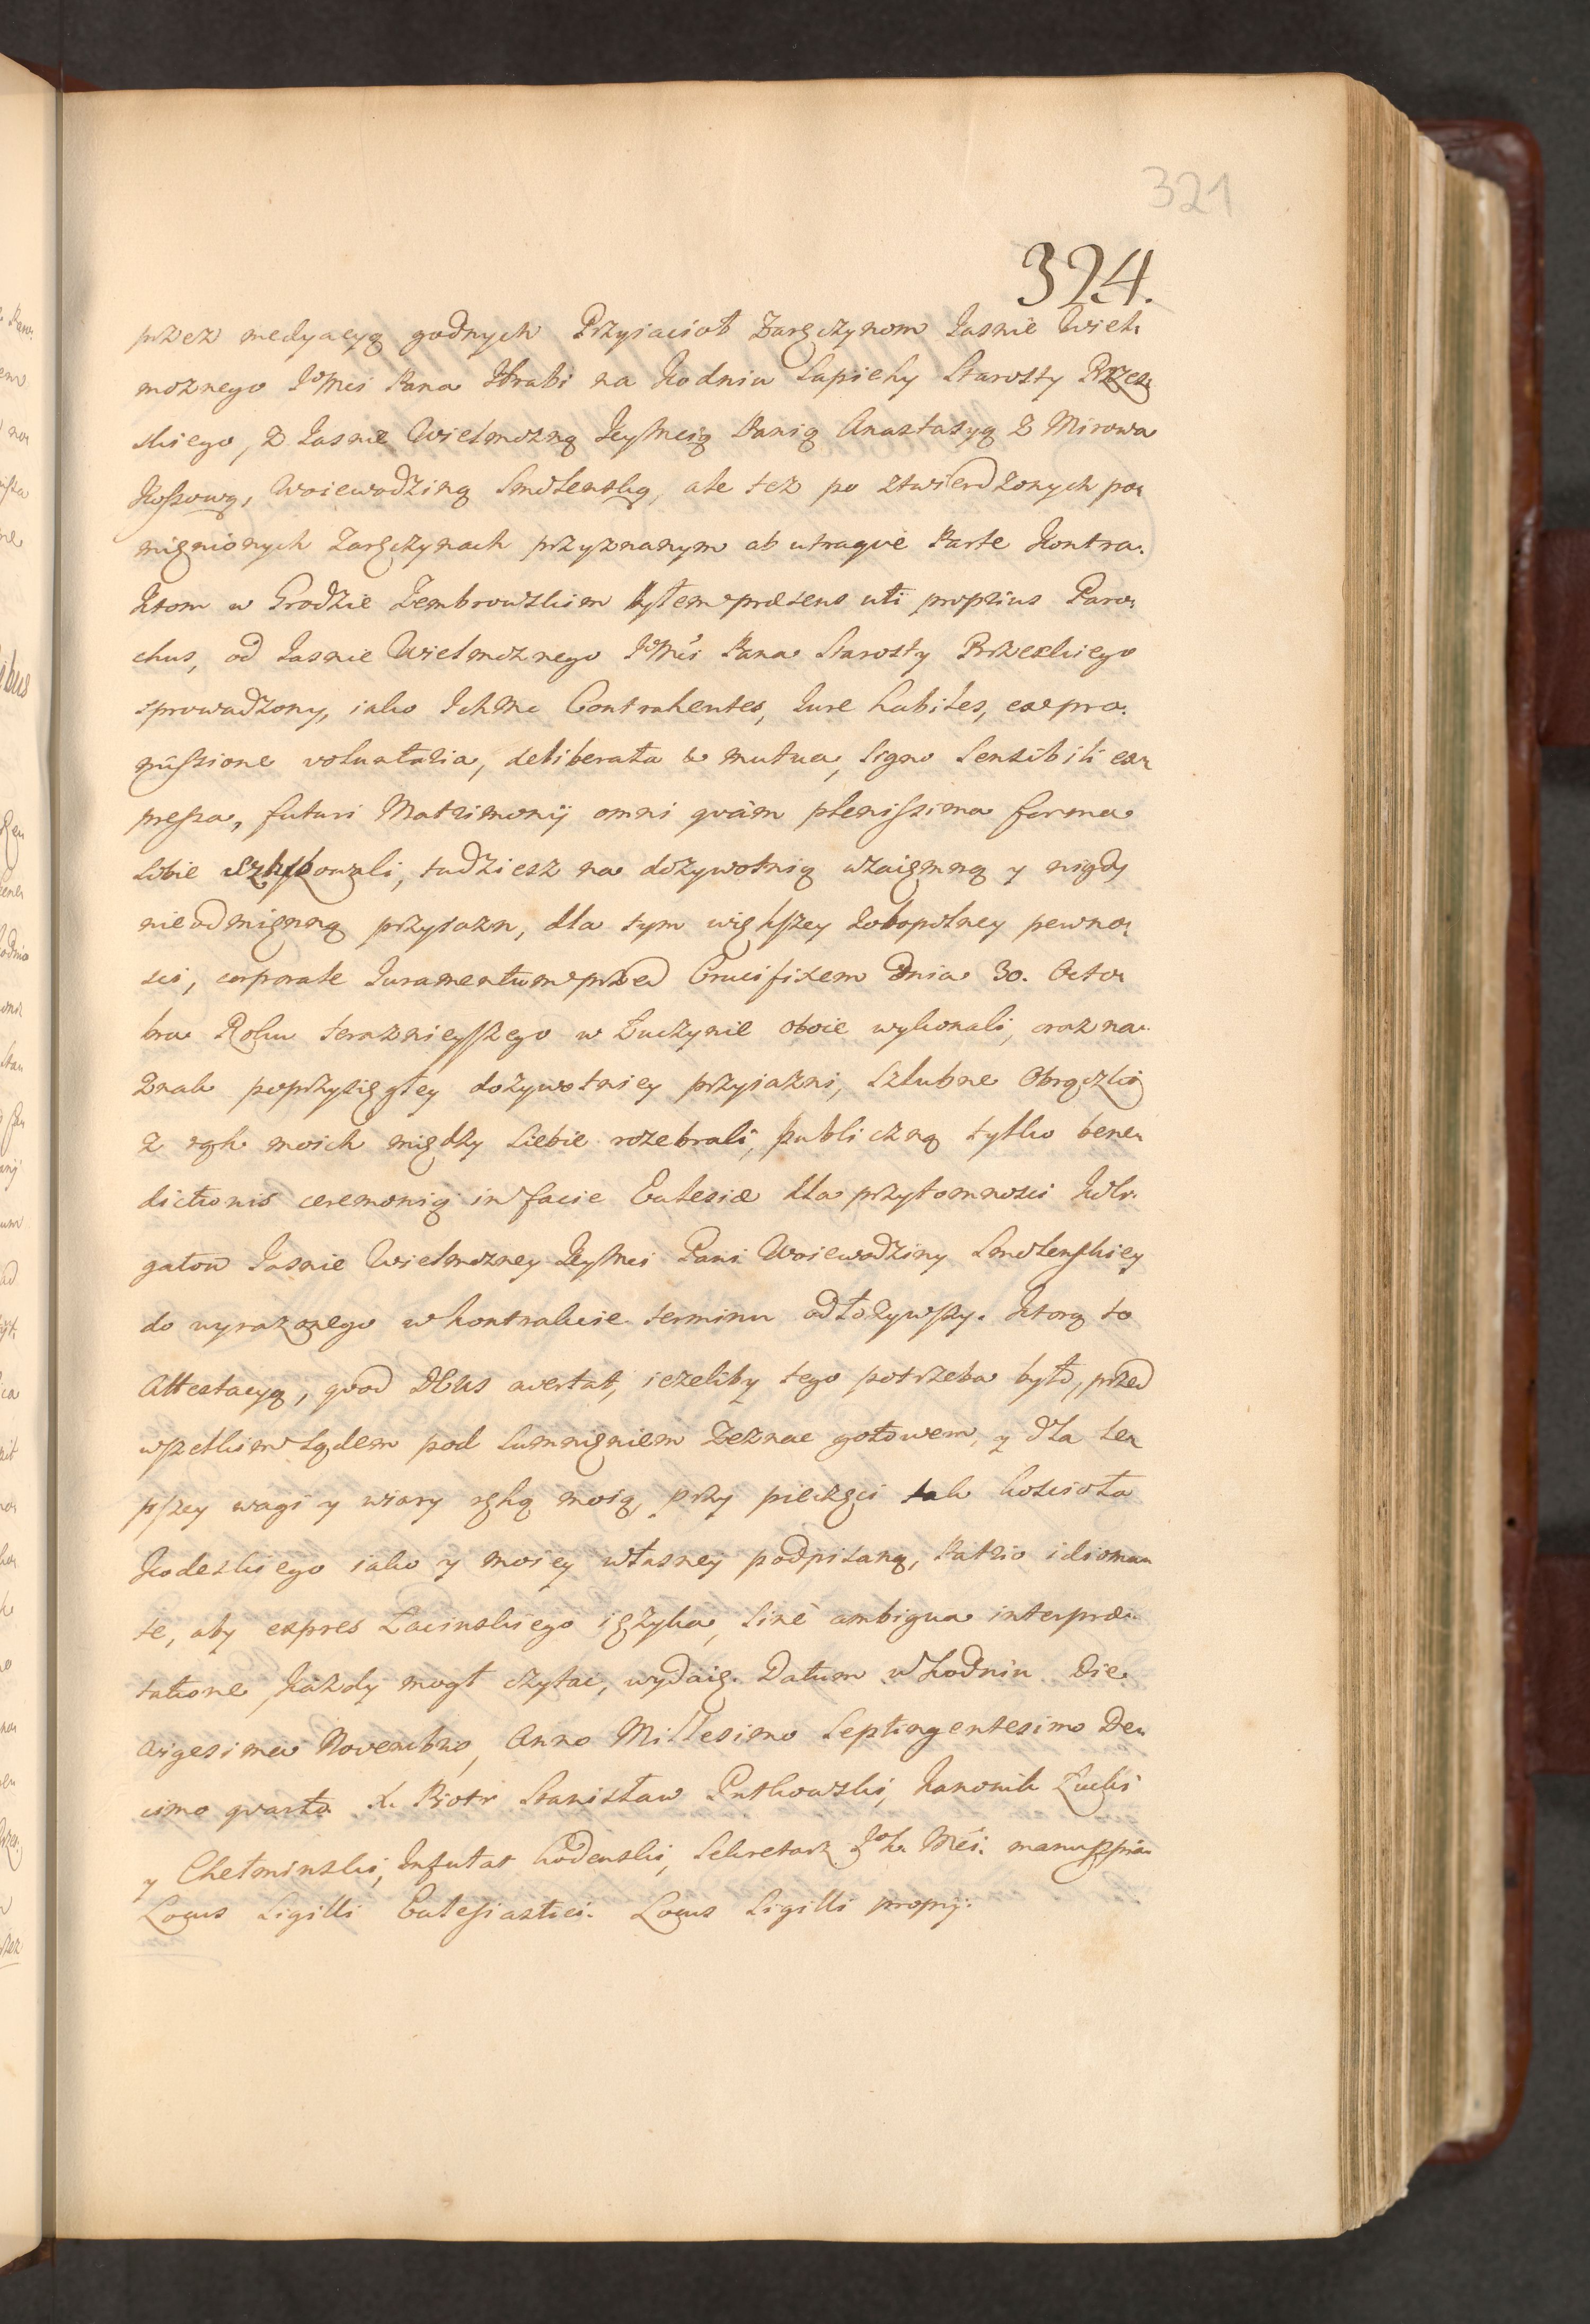 321
324.
przez medyacyą godnych Przyiacioł Zaręczynom Jasnie Wiel:
możnego JoMci Pana Hrabi na Kodniu Sapiehy Starosty Brzes:
skiego, z Jasnie Wielmożną JeyMcią Panią Anastasyą z Mirowa
Hossową, Woiewodziną Smolenską, ale też po ztwierdzonych po:
mięnionych Zaręczynach przyznanym ab utraque Parte Kontra:
ktom w Grodzie Zembrowskim byłem præsens uti proprius Paro:
chus, od Jasnie Wielmożnego JoMci Pana Starosty Brzeskiego
sprowadzony, iako IchMc Contrahentes, Jure habiles, ex pro:
missione voluntaria, deliberata & mutua, signo sensibili ex:
pressa, futuri Matrimonij omni quàm plenissima forma
sobie szlubowali, tudziesz na dożywotnią wzaięmną y nigdy
nieodmięnną przyiazn, dla tym większey dobopolney pewno:
sci, corporale Juramentum przed Crucifixem Dnia 30. Octo:
bra Roku teraznieyszego w Łuczynie oboie wykonali, oraz na
znak poprzysięgłey dożywotniey przyiazni, szlubne Obrączki
z rąk moich między siebie rozebrali, publiczną tylko bene:
dictionis ceremonią in facie Eclesiæ dla przytomnosci Kole:
gatow Jasnie Wielmożney JeyMci Pani Woiewodziny Smolenskiey
do wyrażonego w kontrakcie terminu odłożywszy. Ktorą to
Attestacyą, quod DEus avertat, ieżeliby tego potrzeba było, przed
wszelkim sądem pod sumnięniem zeznac gotowem, y dla le:
pszey wagi y wiary ręką moią, przy pieczęci tak kosciola
Kodeskiego iako y moiey własney podpisaną, Patrio idioma:
te, aby expres Łacinskiego ięzyka, sinè ambigua interpræ:
tatione, każdy mogł czytac, wydaię. Datum w Kodniu Die
vigesima Novembris, Anno Millesimo Septingentesimo De:
cimo quarto. X. Piotr Stanisław Putkowski, Kanonik Łucki
y Chełminski, Infułat Kodenski, Sekretarz JoK. Mci. manu ppria
Locus Sigilli Eclesiastici. Locus Sigilli proprij.